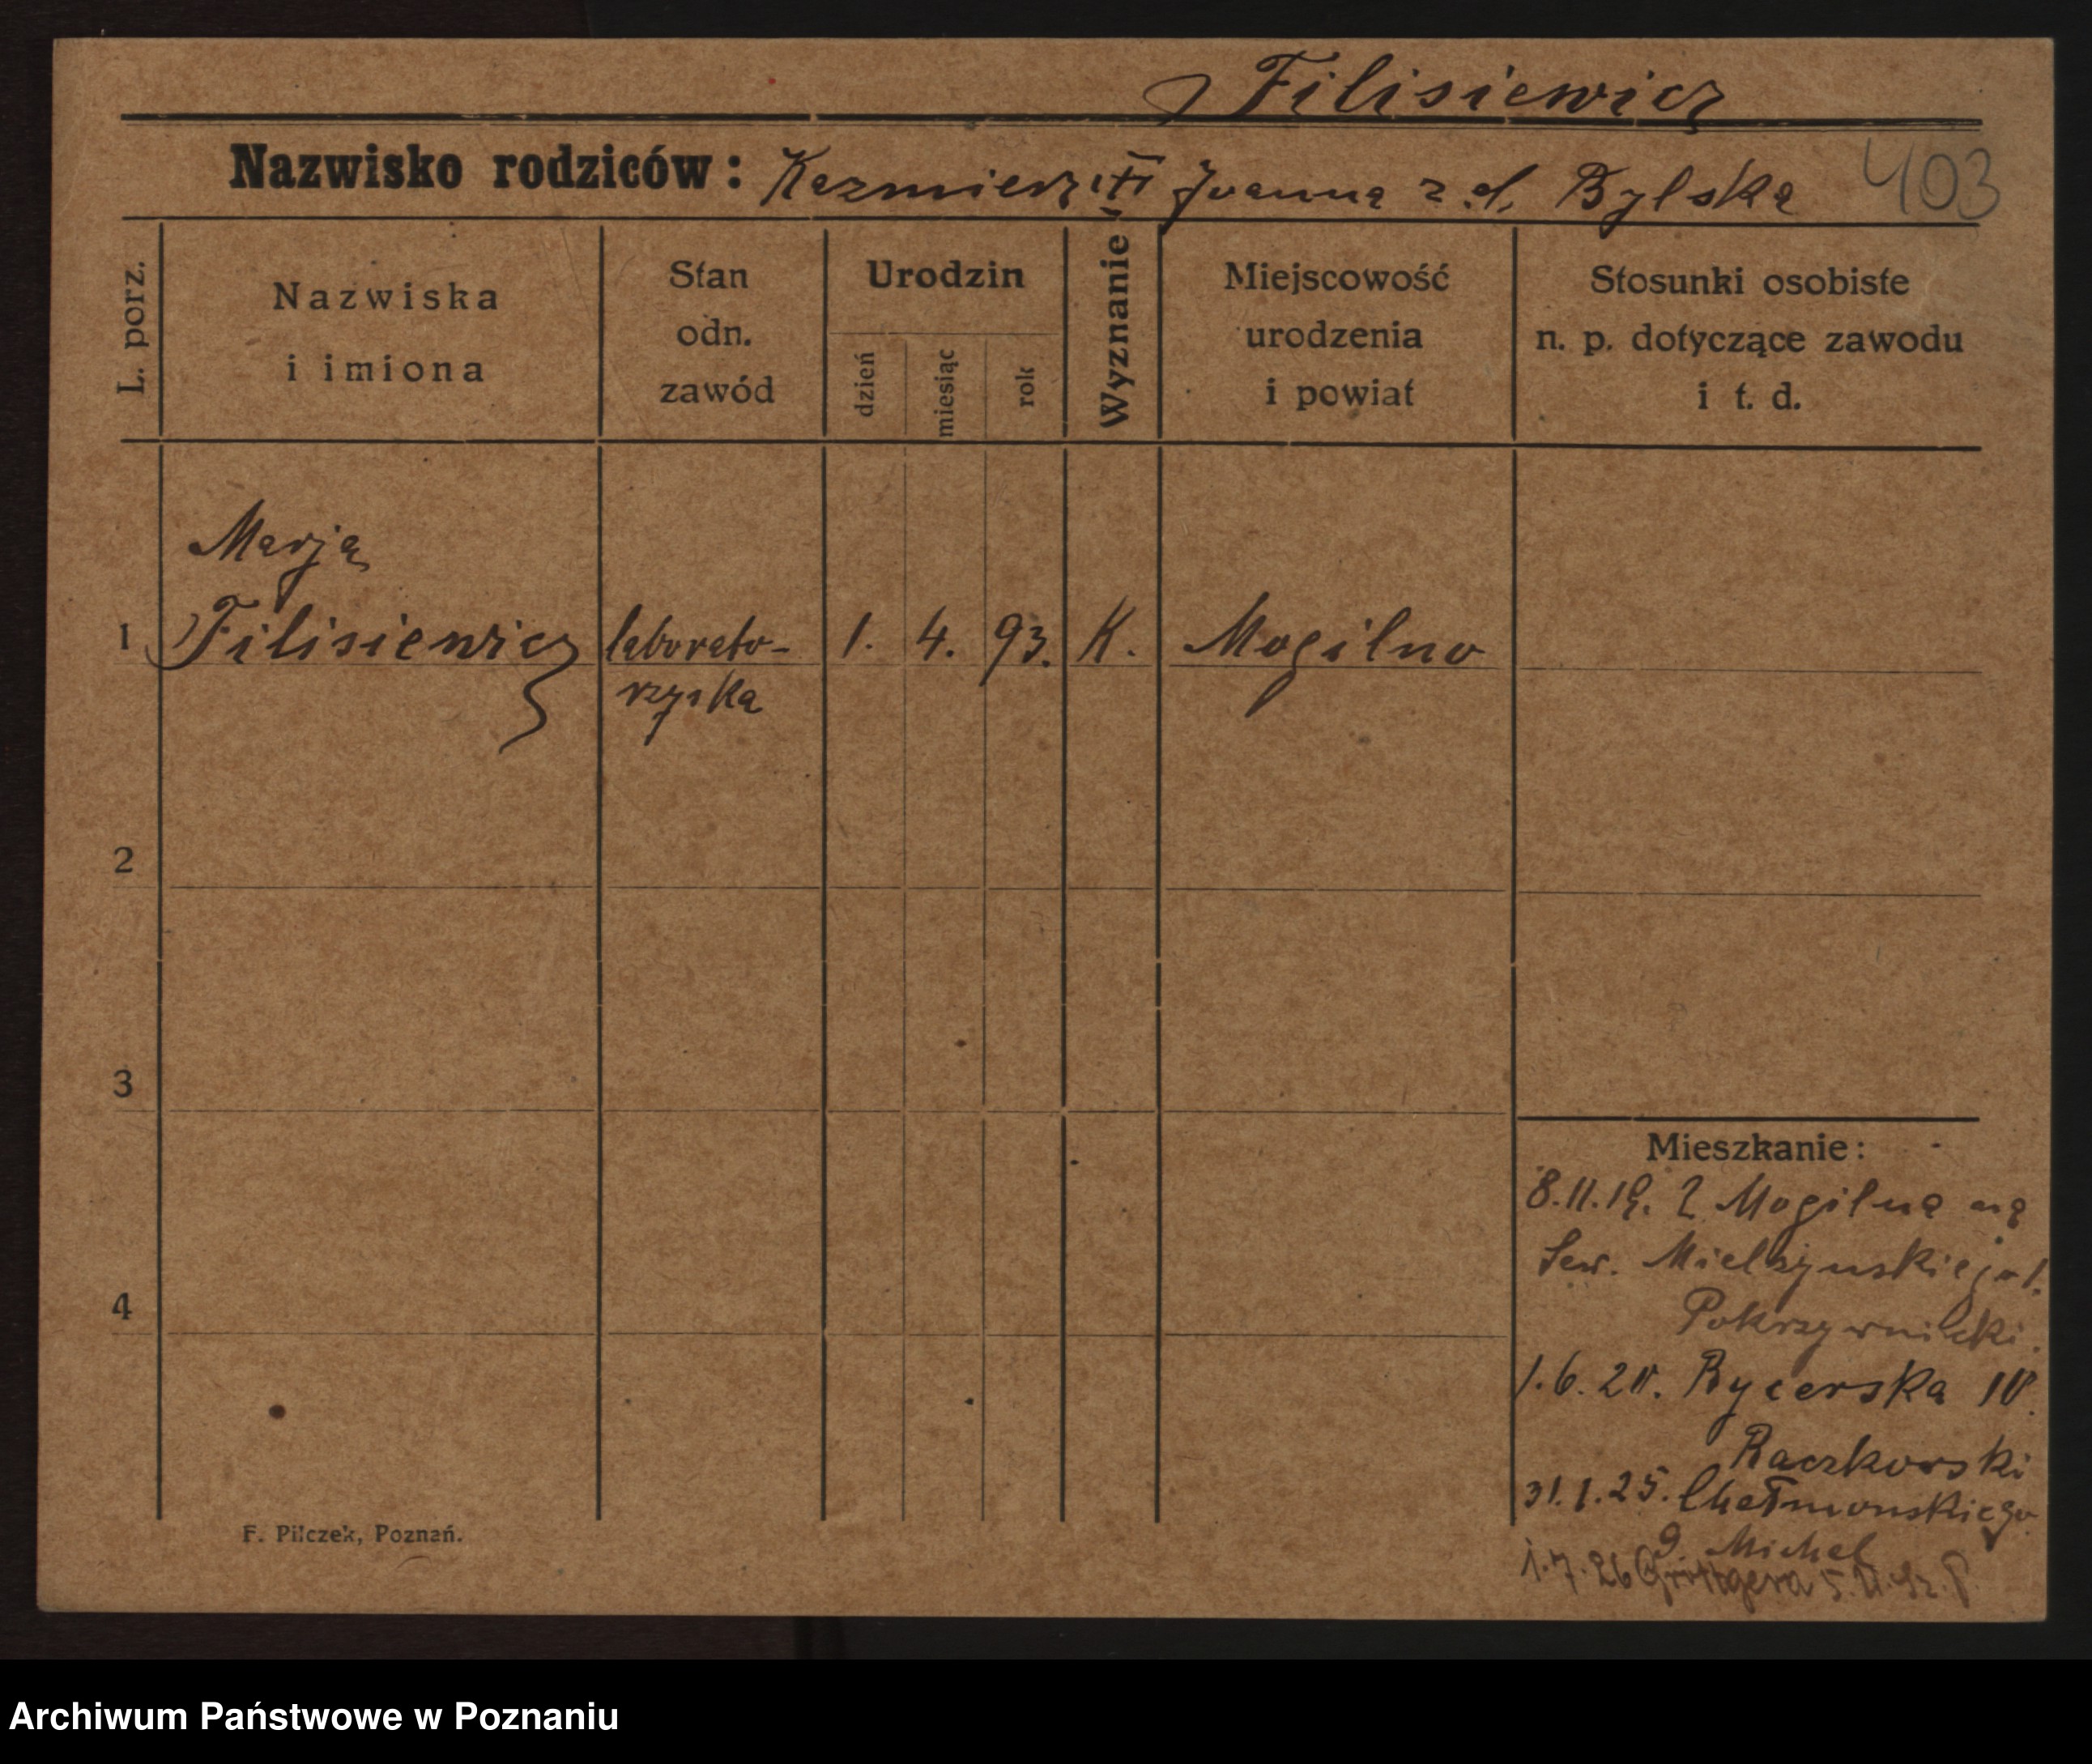 Filisiewicz
Nazwisko rodziców: Kazmierz i Joanna z d. Bylska 403
L. porz.
Nazwiska
i imiona
Stan
odn.
zawód
Urodzin
dzień
miesiąc
rok
Wyznanie
Miejscowość
urodzenia
i powiat
Stosunki osobiste
n. p. dotyczące zawodu
i t. d.
Marja
1 Filisiewicz laborato- 1. 4. 93. K. Mogilno
rzystka
2
3
4
Mieszkanie:
8.11.19. Z Mogilna na
Sew. Mielżynskiego 1.
Pokrzywnicki.
1.6.20. Rycerska 10.
Raczkowski
31.1.25. Chełmonskiego
9. Michel
1.7.26 Grottgera 5.
F. Pilczek, Poznań.
Archiwum Państwowe w Poznaniu